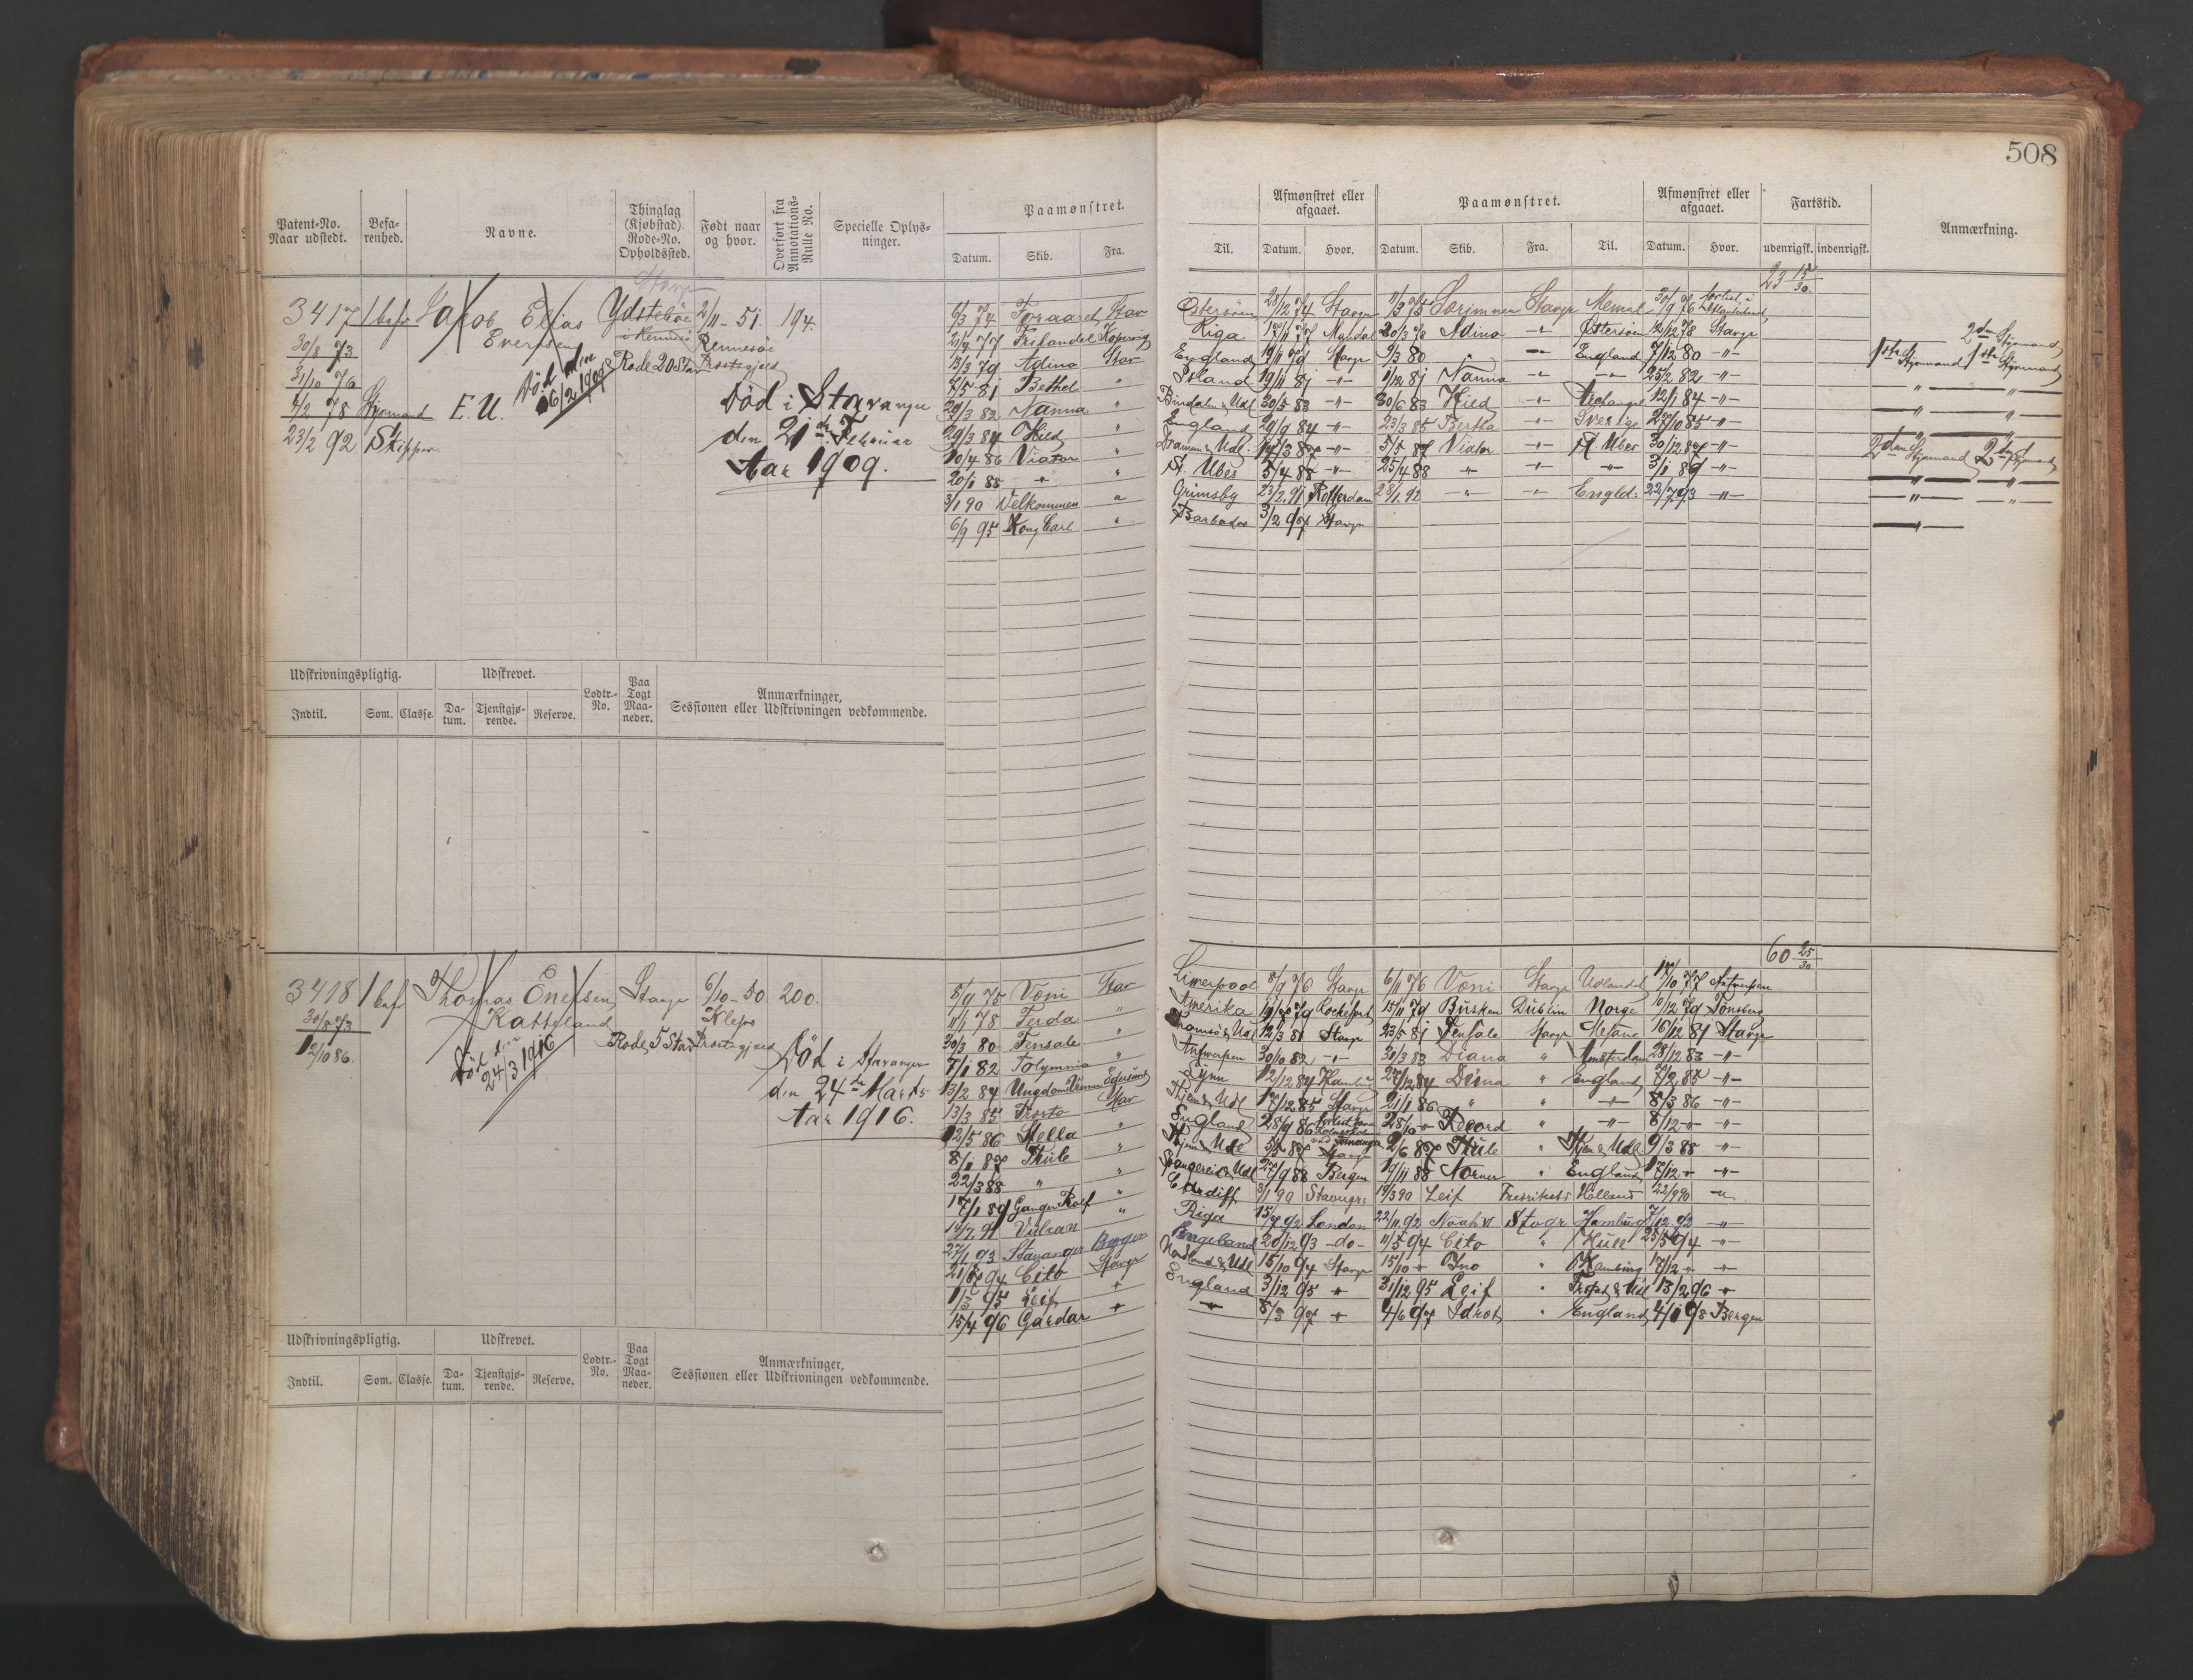 508
Patent-No. Naar udstedt. Befarenhed. Navne. Thinglag (Kjøbstad). Rode-No. Opholdssted. Født naar og hvor. Overført fra Annotations-Rulle No. Specielle Oplysninger. Paamønstret. Datum. Skib. Fra.
Til. Afmønstret eller afgaaet. Datum. Hvor. Paamønstret. Datum. Skib. Fra. Til. Afmønstret eller afgaaet. Datum. Hvor. Fartstid. udenrigsk. indenrigsk. Anmærkning.
23 15/30
3417 1 bef. Jakob Elias Evensen Ydstebøe i Rennesø Stavgr 2/11-51. Rennesøe Præstegjeld 194.
30/8 73
31/10 76
4/2 78 Styrmand E. U.
23/2 92 Skipper
Rode 20 Stav
Død den 26/2 1909
Død i Stavanger
den 21de Februar
Aar 1909.
6/3 74 Foraaret Stav Østersøen 23/12 74 Stavgr 11/3 75 Sørimner Stavgr Memel 30/9 76
21/4 77 Frihandel Kopervig Riga 17/11 77 Mandal 20/3 78 Adina -"- Østersøen 14/12 78 Stavgr
13/3 79 Adina Stav England 19/11 79 Stavgr 9/3 80 " -"- England 7/12 80 -"-
7/5 81 Bethel " Island 19/11 81 -"- 1/12 81 Nanna -"- -"- 25/2 82 -"-
29/3 82 Nanna " 30/5 83 -"- 30/6 83 Hild -"- Archangel 12/1 84 -"-
29/3 84 Hild " England 20/9 84 -"- 23/3 85 Bertha -"- Sverige 27/10 85 -"-
10/4 86 Viator " 14/3 87 -"- 5/5 87 Viator -"- St. Ubes 30/12 87 -"-
20/1 88 " " St. Ubes 5/4 88 -"- 25/4 88 " -"- -"- 3/1 89 -"-
3/1 90 Velkommen " Grimsby 23/2 91 Rotterdam 28/1 92 " -"- Engld. 22/7 93 -"-
6/9 95 Kong Carl " Barbados 3/2 97 Stavgr
2den Styrmand
1ste Styrmand 1ste Styrmand
2den Styrmand 2den Styrmand
Udskrivningspligtig. Udskrevet. Lodtr.-No. Paa Togt Maaneder. Anmærkninger, Sessionen eller Udskrivningen vedkommende.
Indtil. Som. Classe. Datum. Tjenstgjørende. Reserve.
60 25/30
3418 1 bef Thomas Enersen Katteland Stavgr 6/10-50 Klepp Præstegjeld 200.
30/8 73
12/10 86.
Rode 5 Stav
Død den 24/3 1916
Død i Stavanger
den 24de Marts
Aar 1916.
8/9 75 Vøni Stav Liverpool 8/9 76 Stavgr 6/11 76 Vøni Stavgr Udlandet 17/10 77 Antwerpen
11/1 78 Ferda " Amerika 79 Rochefort 15/11 79 Busken Dublin Norge 10/12 79 Tønsberg
30/3 80 Fensale " 12/3 81 Stavgr 23/5 81 Fensale Stavgr 16/12 81 Stavgr
7/1 82 Polymnia " Antwerpen 30/10 82 -"- 31/3 83 Diana " Amsterdam 28/12 83 -"-
13/2 84 Ungdoms Vennen Egersund Lynn 12/12 84 27/12 84 Deina " England 7/2 85 -"-
13/3 85 Stav 17/12 85 Stavgr 21/1 86 " " -"- 8/3 86 -"-
12/5 86 Stella " England 28/9 86 28/10 " Record " -"- 8/12 " -"-
8/1 87 Thule " 5/5 87 Stavgr 2/6 87 Thule " 9/3 88 -"-
22/3 88 " " 27/9 88 Bergen 19/11 88 Norner " England 17/12 " -"-
17/1 89 Ganger Rolf " Cardiff 3/1 90 Stavangr: 19/3 90 Leif Fredriksst Holland 22/9 90 -"-
14/7 91 Vulcan " Riga 15/7 92 London 22/11 92 Noah VI Stvgr Hamburg 7/12 92 -"-
27/1 93 Stavanger Bergen Engeland 20/12 93 -do- 11/5 94 Cito " Hull 25/5 94 -"-
21/8 94 Cito Stavgr 15/10 94 Stavgr 15/10 " Ino " Hamburg 17/12 " "
1/3 95 Leif " England 3/12 95 " 31/12 95 Leif " 13/2 96 "
15/4 96 Gardar " -"- 8/3 97 " 4/6 97 Idræt " England 4/1 98 Bergen
Udskrivningspligtig. Udskrevet. Lodtr.-No. Paa Togt Maaneder. Anmærkninger, Sessionen eller Udskrivningen vedkommende.
Indtil. Som. Classe. Datum. Tjenstgjørende. Reserve.